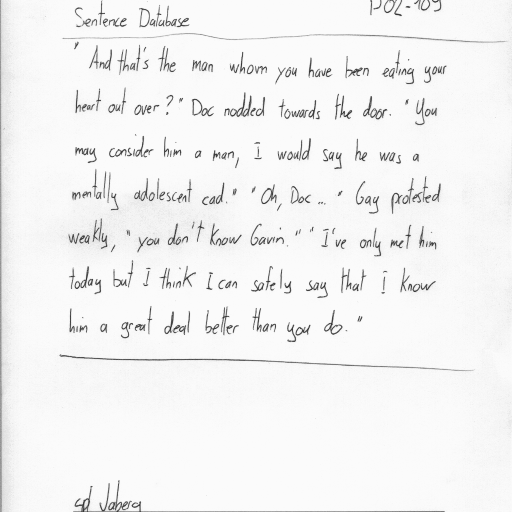 Sentence Database P02-109
"And that's the man whom you have been eating your
heart out over?" Doc nodded towards the door. "You
may consider him a man, I would say he was a
mentally adolescent cad." "Oh, Doc ... " Gay protested
weakly, "you don't know Gavin." "I've only met him
today but I think I can safely say that I know
him a great deal better than you do."